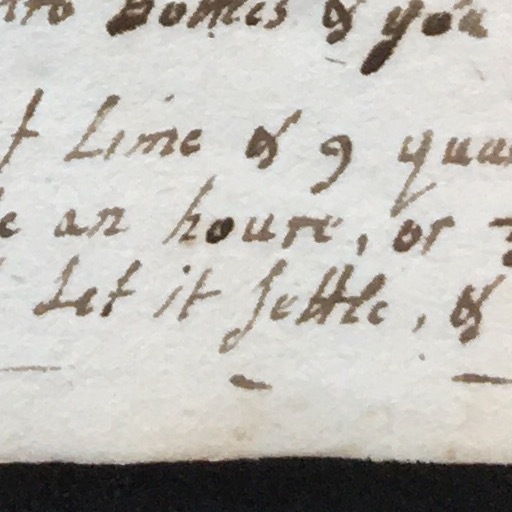 into Bottles & you
Lime & 9 qua
an houre, or
Let it settle, &